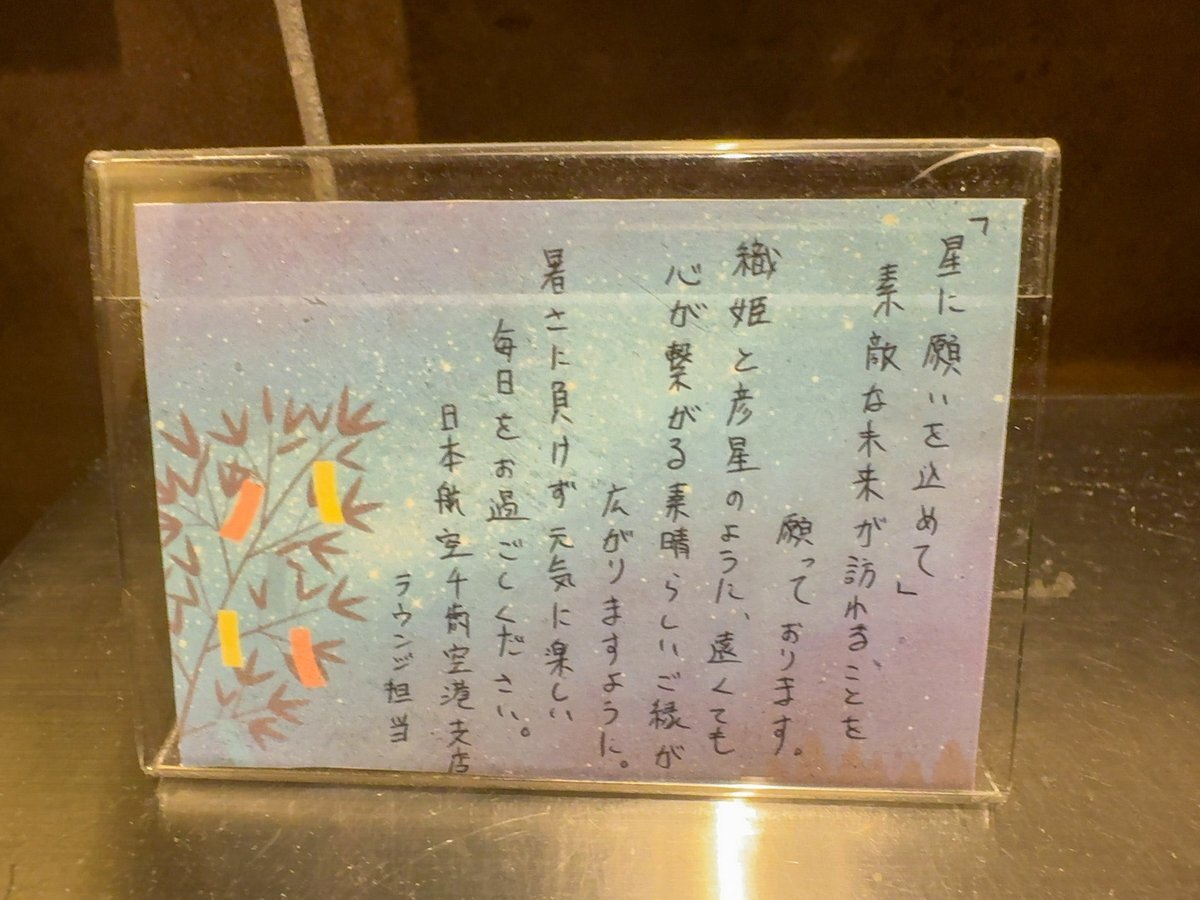 「星に願いを込めて」
素敵な未来が訪れることを
願っております。
織姫と彦星のように、遠くても
心が繋がる素晴らしいご縁が
広がりますように。
暑さに負けず元気に楽しい
毎日をお過ごしください。
日本航空千歳空港支店
ラウンジ担当